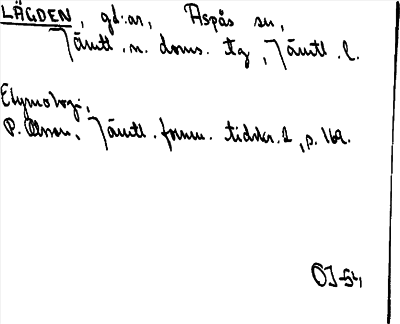 LÄGDEN, gd:ar, Aspås sn,
Jämtl. n. doms. tg, Jämtl. l.
Etymologi:
P. Olsson, Jämtl. fornm. tidskr. 1, p. 162.
OJ-54